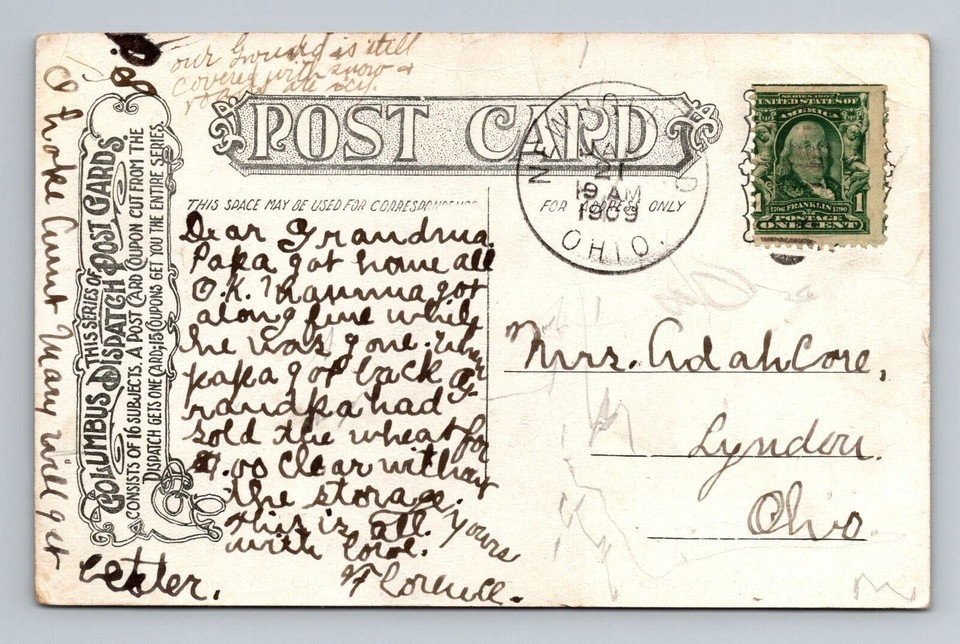 our Ground is still
covered with snow +
roads are icy.
P.S.
I hope Aunt Mary will get
better.
POST CARD
THIS SPACE MAY BE USED FOR CORRESPONDENCE
FOR ADDRESS ONLY
THIS SERIES OF
COLUMBUS DISPATCH POST CARDS
CONSISTS OF 16 SUBJECTS. A POST CARD COUPON CUT FROM THE
DISPATCH GETS ONE CARD; 15 COUPONS GET YOU THE ENTIRE SERIES.
Dear Grandma
Papa got home all
O.K. Mamma got
along fine while
he was gone. When
papa got back G-
randpa had
sold the wheat for
$1.00 clear without
the storage.
this is all. Yours
with love.
Florence.
21
19 AM
1909
OHIO.
SERIES 1902
UNITED STATES OF
AMERICA
1 FRANKLIN 1
1706 1790
POSTAGE
ONE CENT
Mrs. Adah Core,
Lyndon.
Ohio.